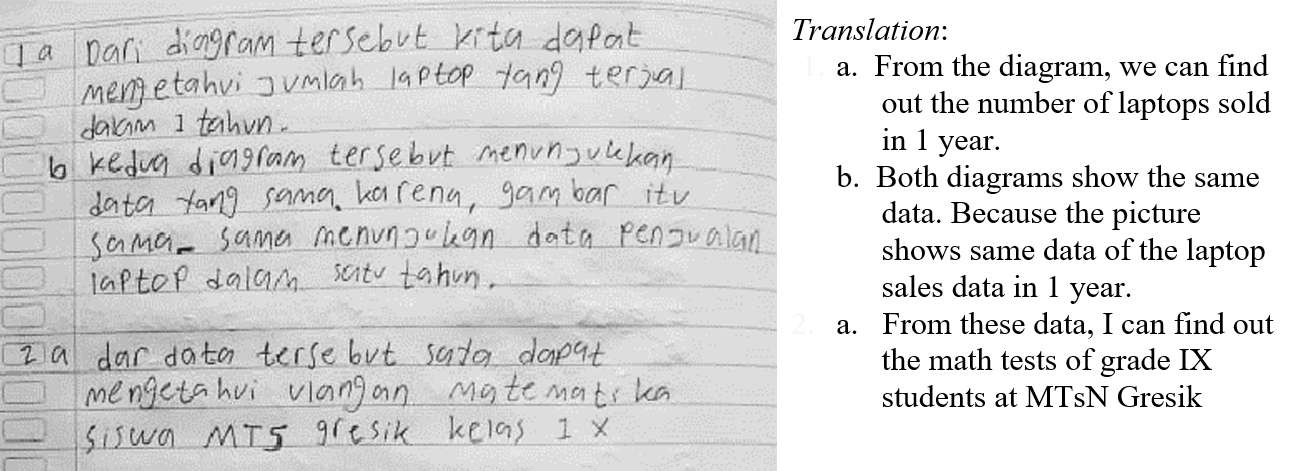 1 a Dari diagram tersebut kita dapat
mengetahui jumlah laptop yang terjual
dalam 1 tahun.
b kedua diagram tersebut menunjukkan
data yang sama. karena, gambar itu
sama_ sama menunjukan data penjualan
laptop dalam satu tahun.
2 a dar data tersebut saya dapat
mengetahui ulangan matematika
siswa MTS gresik kelas 1 X
Translation:
1. a. From the diagram, we can find
out the number of laptops sold
in 1 year.
b. Both diagrams show the same
data. Because the picture
shows same data of the laptop
sales data in 1 year.
2. a. From these data, I can find out
the math tests of grade IX
students at MTsN Gresik